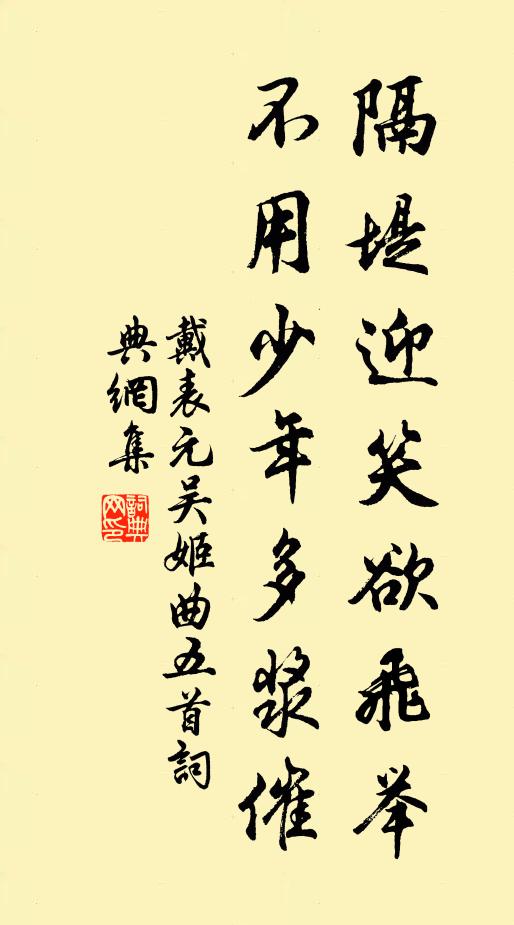 隔堤迎笑欲飛举
不用少年多漿催
戴表元吴姬曲五首詞
典網集
詞典网印